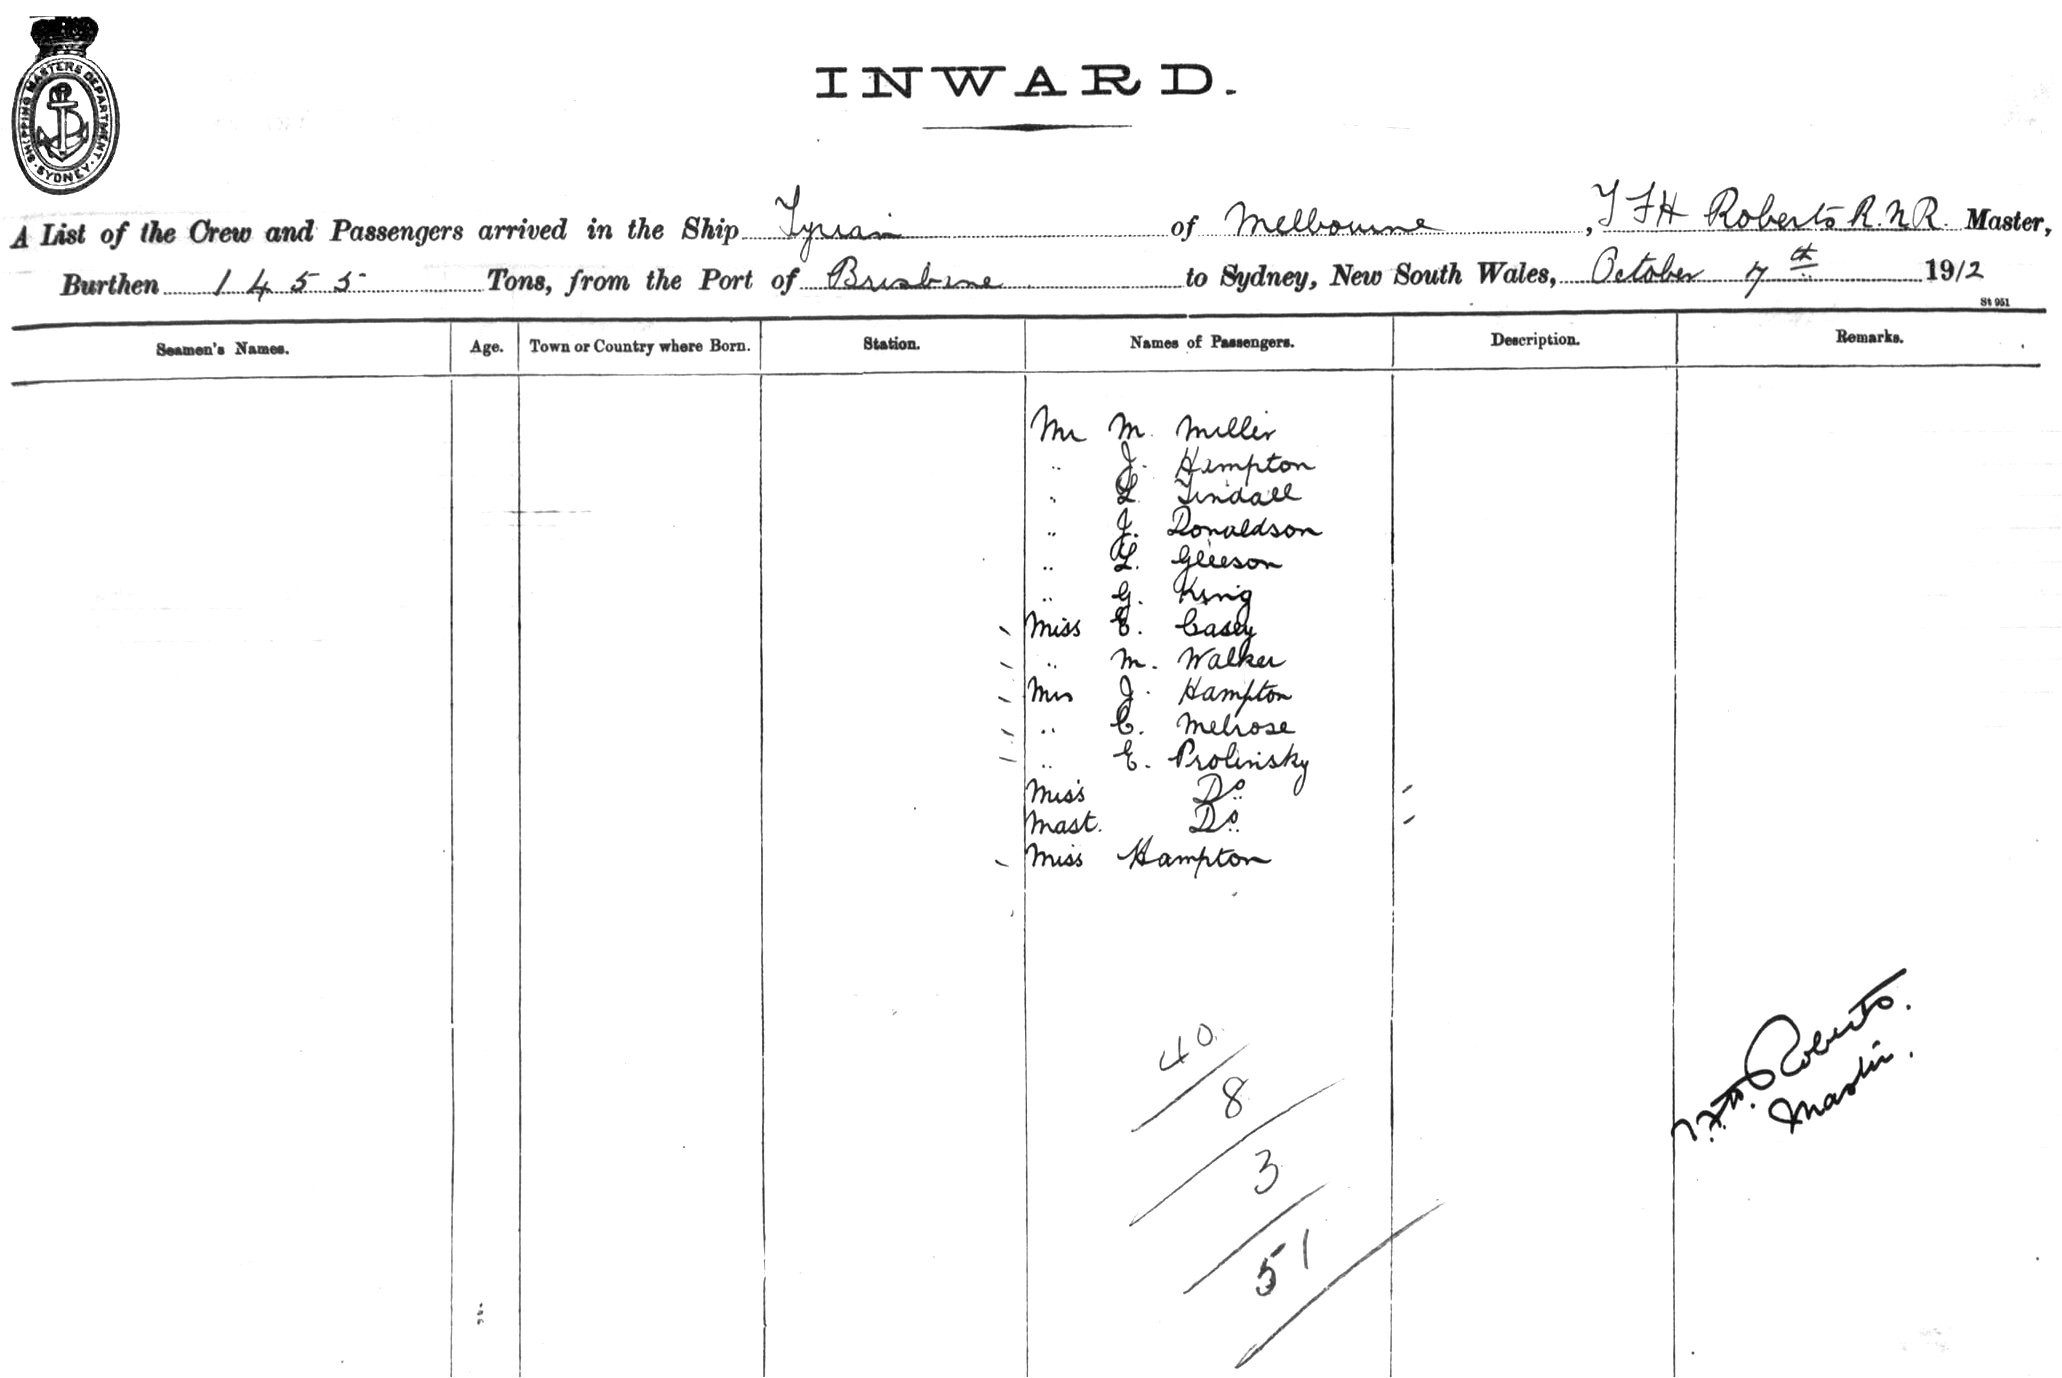 SHIPPING MASTERS DEPARTMENT. SYDNEY
INWARD.
A List of the Crew and Passengers arrived in the Ship Tyrian of Melbourne, T F H Roberts R.N.R. Master,
Burthen 1455 Tons, from the Port of Brisbane to Sydney, New South Wales, October 7th 1912
St 951
Seamen's Names. Age. Town or Country where Born. Station. Names of Passengers. Description. Remarks.
Mr M. Miller
" J. Hampton
" L. Tindall
" J. Donaldson
" L. Gleeson
" G. King
Miss E. Casey
" M. Walker
Mrs J. Hampton
" C. Melrose
" E. Prolinsky
Miss Do
Mast. Do
Miss Hampton
40
8
3
51
T.F.H. Roberts.
Master.